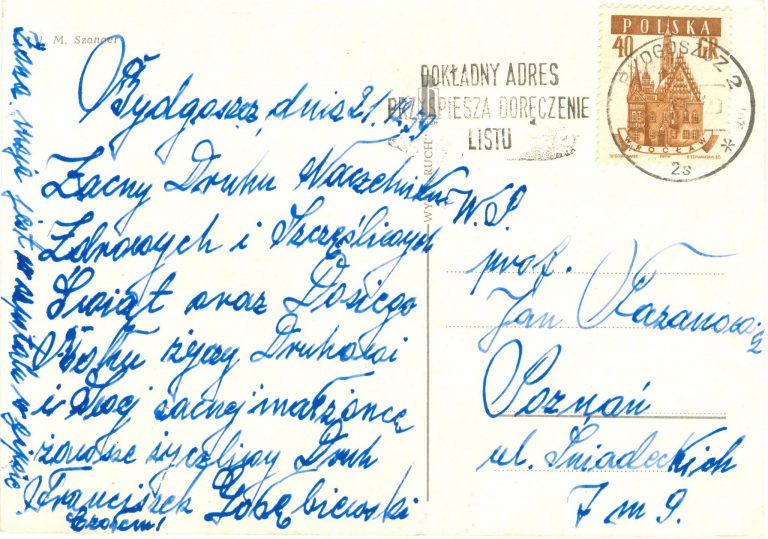 M. Szancer
Bydgoszcz, dnia 21.
Zacny Druhu Naczelniku
Zdrowych i Szczęśliwych
Świąt oraz Dosiego
Roku życzy Druhowi
i Twej zacnej małżonce
zawsze życzliwy Druh
Franciszek Gołębiewski
Czołem!
Żona moja jest w szpitalu w
WYD. „RUCH"
DOKŁADNY ADRES
PRZYSPIESZA DORĘCZENIE
LISTU
POLSKA
40 GR
WROCŁAW
BYDGOSZCZ 2
2s
W.P.
prof.
Jan
Poznań
ul. Śniadeckich
7 m 9.